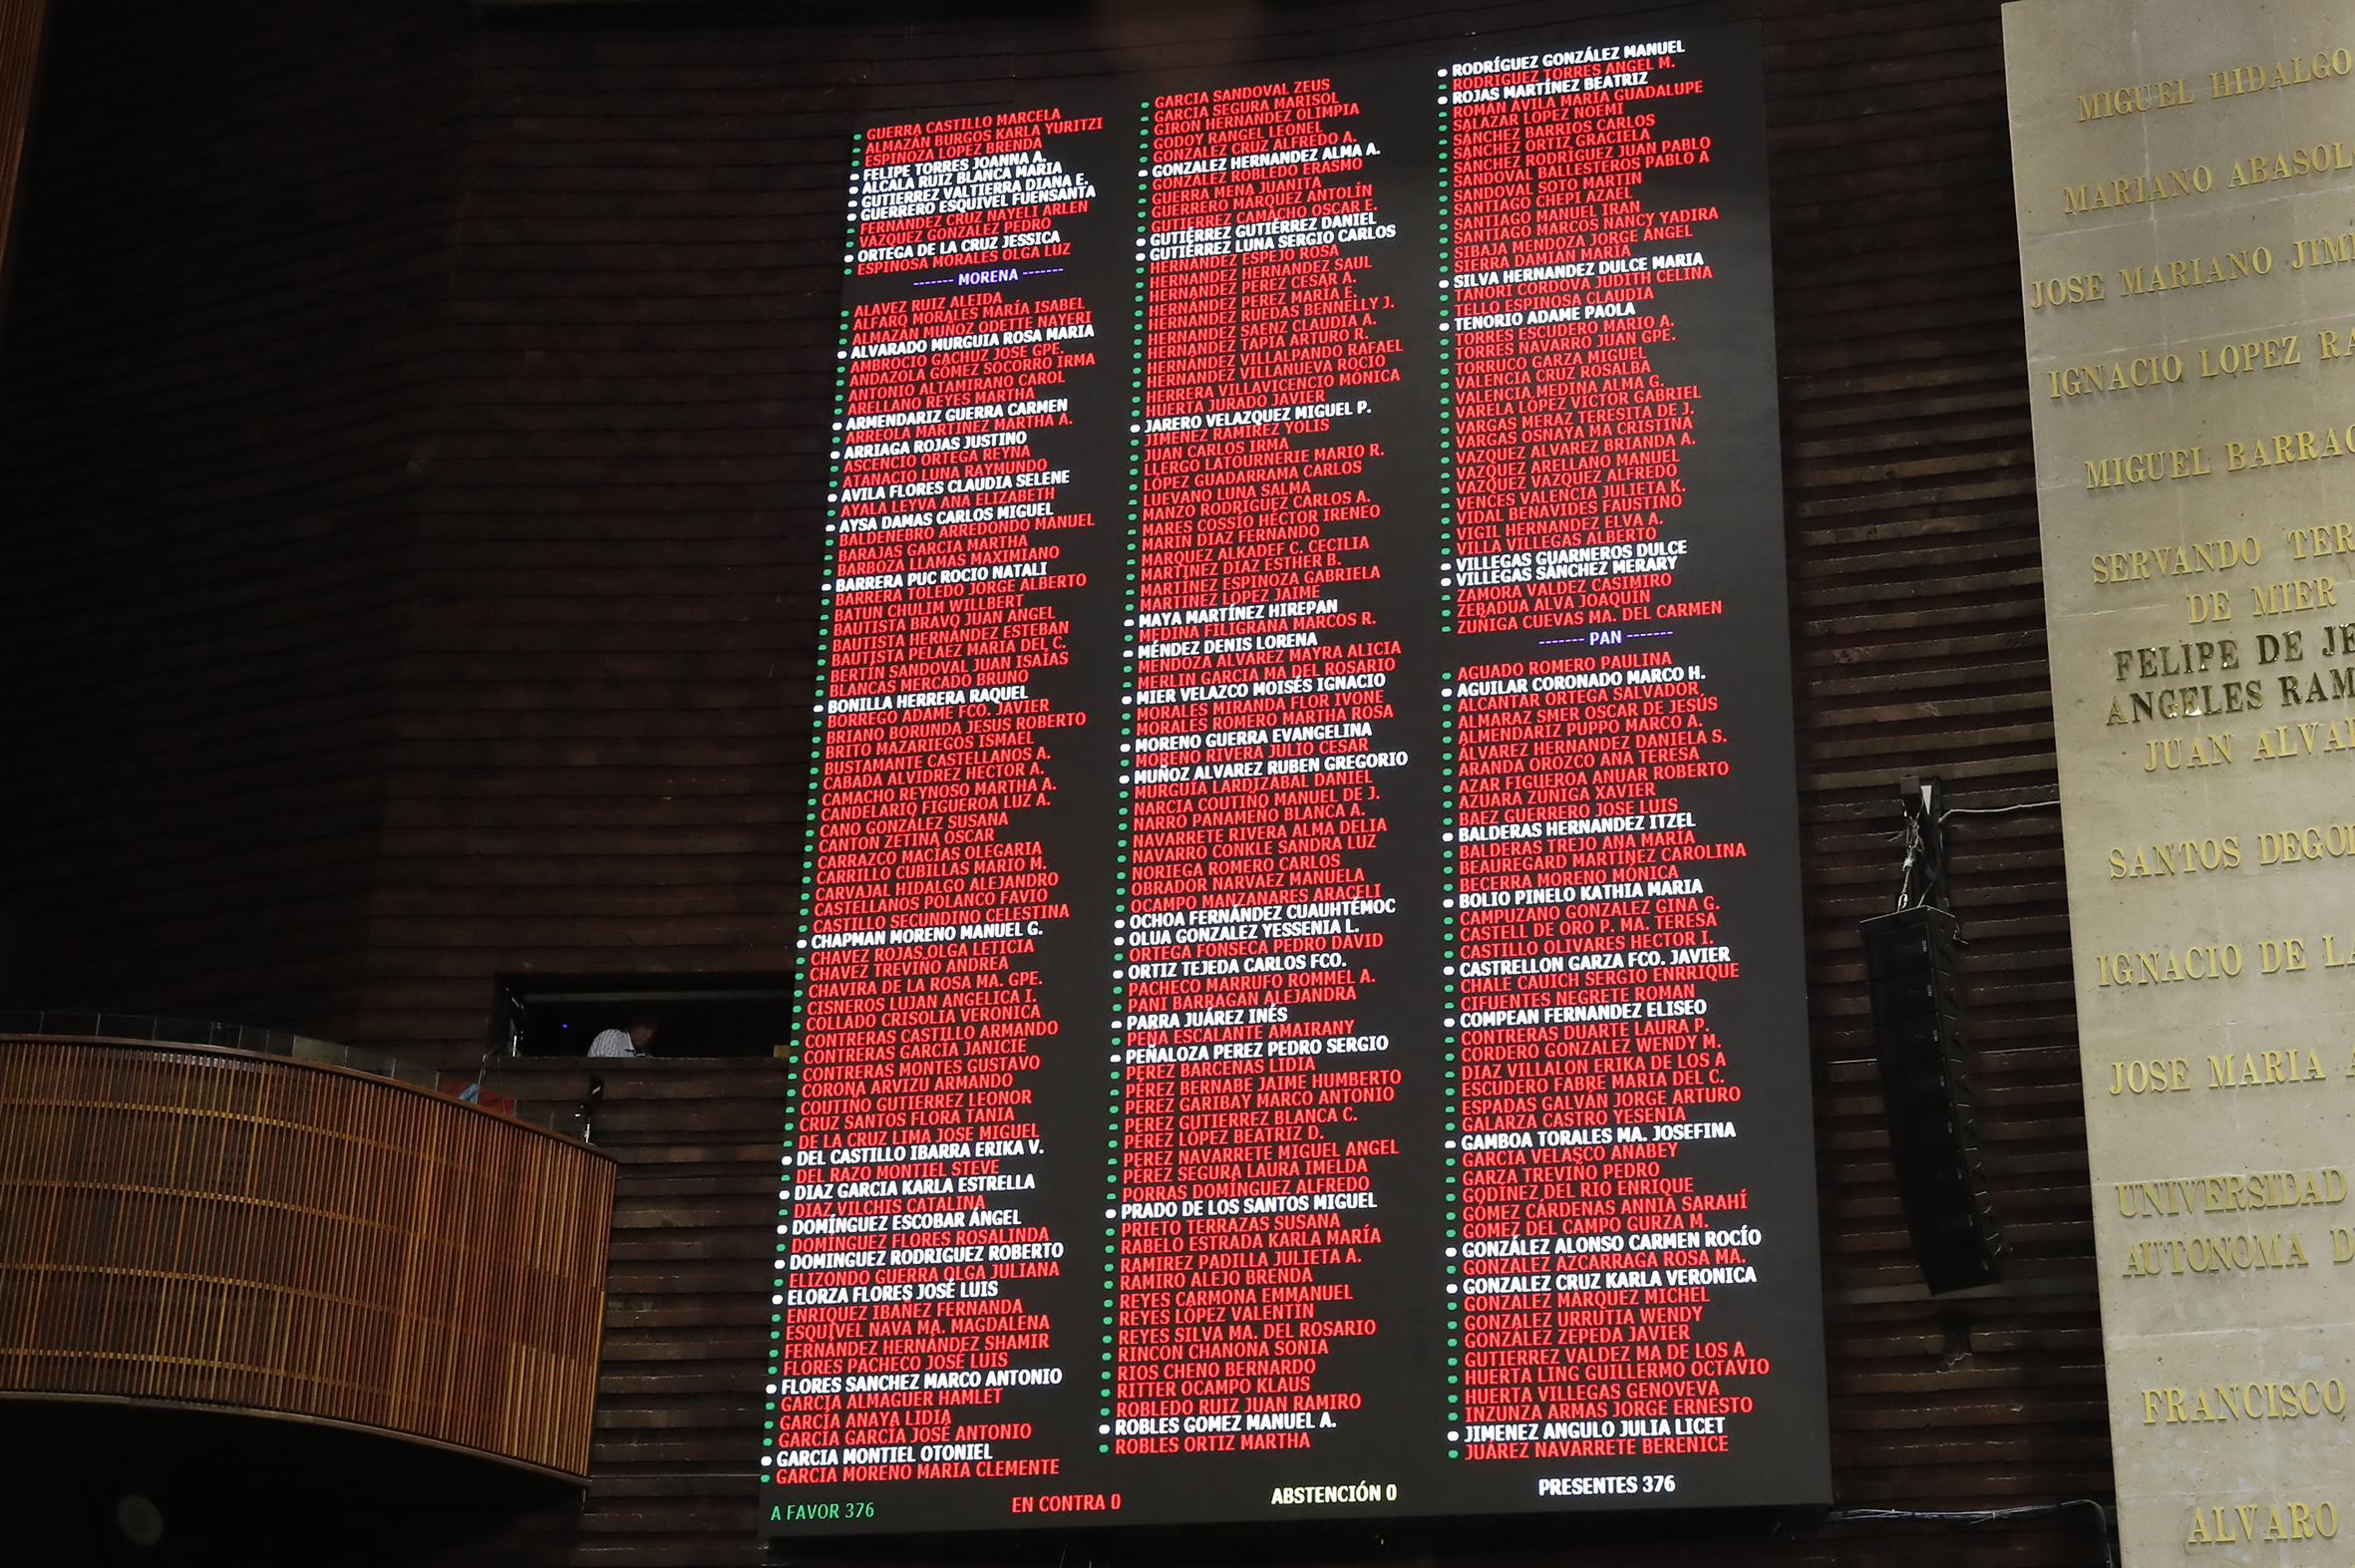 GUERRA CASTILLO MARCELA
ALMAZÁN BURGOS KARLA YURITZI
ESPINOZA LOPEZ BRENDA
FELIPE TORRES JOANNA A.
ALCALA RUIZ BLANCA MARIA
GUTIERREZ VALTIERRA DIANA E.
GUERRERO ESQUIVEL FUENSANTA
FERNÁNDEZ CRUZ NAYELI ARLEN
VAZQUEZ GONZALEZ PEDRO
ORTEGA DE LA CRUZ JESSICA
ESPINOSA MORALES OLGA LUZ
------- MORENA -------
ALAVEZ RUIZ ALEIDA
ALFARO MORALES MARÍA ISABEL
ALMAZÁN MUÑOZ ODETTE NAYERI
ALVARADO MURGUIA ROSA MARIA
AMBROCIO GACHUZ JOSE GPE.
ANDAZOLA GÓMEZ SOCORRO IRMA
ANTONIO ALTAMIRANO CAROL
ARELLANO REYES MARTHA
ARMENDARIZ GUERRA CARMEN
ARREOLA MARTINEZ MARTHA A.
ARRIAGA ROJAS JUSTINO
ASCENCIO ORTEGA REYNA
ATANACIO LUNA RAYMUNDO
AVILA FLORES CLAUDIA SELENE
AYALA LEYVA ANA ELIZABETH
AYSA DAMAS CARLOS MIGUEL
BALDENEBRO ARREDONDO MANUEL
BARAJAS GARCIA MARTHA
BARBOZA LLAMAS MAXIMIANO
BARRERA PUC ROCIO NATALI
BARRERA TOLEDO JORGE ALBERTO
BATUN CHULIM WILLBERT
BAUTISTA BRAVO JUAN ÁNGEL
BAUTISTA HERNÁNDEZ ESTEBAN
BAUTISTA PELAEZ MARIA DEL C.
BERTÍN SANDOVAL JUAN ISAÍAS
BLANCAS MERCADO BRUNO
BONILLA HERRERA RAQUEL
BORREGO ADAME FCO. JAVIER
BRIANO BORUNDA JESUS ROBERTO
BRITO MAZARIEGOS ISMAEL
BUSTAMANTE CASTELLANOS A.
CABADA ALVIDREZ HECTOR A.
CAMACHO REYNOSO MARTHA A.
CANDELARIO FIGUEROA LUZ A.
CANO GONZÁLEZ SUSANA
CANTON ZETINA OSCAR
CARRAZCO MACÍAS OLEGARIA
CARRILLO CUBILLAS MARIO M.
CARVAJAL HIDALGO ALEJANDRO
CASTELLANOS POLANCO FAVIO
CASTILLO SECUNDINO CELESTINA
CHAPMAN MORENO MANUEL G.
CHAVEZ ROJAS OLGA LETICIA
CHAVEZ TREVIÑO ANDREA
CHAVIRA DE LA ROSA MA. GPE.
CISNEROS LUJAN ANGELICA I.
COLLADO CRISOLIA VERONICA
CONTRERAS CASTILLO ARMANDO
CONTRERAS GARCÍA JANICIE
CONTRERAS MONTES GUSTAVO
CORONA ARVIZU ARMANDO
COUTIÑO GUTIERREZ LEONOR
CRUZ SANTOS FLORA TANIA
DE LA CRUZ LIMA JOSE MIGUEL
DEL CASTILLO IBARRA ERIKA V.
DEL RAZO MONTIEL STEVE
DIAZ GARCIA KARLA ESTRELLA
DIAZ VILCHIS CATALINA
DOMÍNGUEZ ESCOBAR ÁNGEL
DOMÍNGUEZ FLORES ROSALINDA
DOMINGUEZ RODRIGUEZ ROBERTO
ELIZONDO GUERRA OLGA JULIANA
ELORZA FLORES JOSÉ LUIS
ENRIQUEZ IBAÑEZ FERNANDA
ESQUIVEL NAVA MA. MAGDALENA
FERNANDEZ HERNÁNDEZ SHAMIR
FLORES PACHECO JOSÉ LUIS
FLORES SANCHEZ MARCO ANTONIO
GARCÍA ALMAGUER HAMLET
GARCÍA ANAYA LIDIA
GARCÍA GARCÍA JOSÉ ANTONIO
GARCIA MONTIEL OTONIEL
GARCIA MORENO MARIA CLEMENTE
GARCIA SANDOVAL ZEUS
GARCIA SEGURA MARISOL
GIRON HERNANDEZ OLIMPIA
GODOY RANGEL LEONEL
GONZÁLEZ CRUZ ALFREDO A.
GONZALEZ HERNANDEZ ALMA A.
GONZÁLEZ ROBLEDO ERASMO
GUERRA MENA JUANITA
GUERRERO MÁRQUEZ ANTOLÍN
GUTIERREZ CAMACHO OSCAR E.
GUTIÉRREZ GUTIÉRREZ DANIEL
GUTIÉRREZ LUNA SERGIO CARLOS
HERNÁNDEZ ESPEJO ROSA
HERNANDEZ HERNANDEZ SAUL
HERNÁNDEZ PEREZ CESAR A.
HERNÁNDEZ PEREZ MARÍA E.
HERNÁNDEZ RUEDAS BENNELLY J.
HERNANDEZ SAENZ CLAUDIA A.
HERNÁNDEZ TAPIA ARTURO R.
HERNÁNDEZ VILLALPANDO RAFAEL
HERNANDEZ VILLANUEVA ROCÍO
HERRERA VILLAVICENCIO MÓNICA
HUERTA JURADO JAVIER
JARERO VELAZQUEZ MIGUEL P.
JIMENEZ RAMIREZ YOLIS
JUAN CARLOS IRMA
LLERGO LATOURNERIE MARIO R.
LÓPEZ GUADARRAMA CARLOS
LUEVANO LUNA SALMA
MANZO RODRÍGUEZ CARLOS A.
MARES COSSÍO HÉCTOR IRENEO
MARIN DIAZ FERNANDO
MARQUEZ ALKADEF C. CECILIA
MARTÍNEZ DIAZ ESTHER B.
MARTÍNEZ ESPINOZA GABRIELA
MARTINEZ LOPEZ JAIME
MAYA MARTÍNEZ HIREPAN
MEDINA FILIGRANA MARCOS R.
MÉNDEZ DENIS LORENA
MENDOZA ALVAREZ MAYRA ALICIA
MERLIN GARCIA MA DEL ROSARIO
MIER VELAZCO MOISÉS IGNACIO
MORALES MIRANDA FLOR IVONE
MORALES ROMERO MARTHA ROSA
MORENO GUERRA EVANGELINA
MORENO RIVERA JULIO CESAR
MUÑOZ ALVAREZ RUBEN GREGORIO
MURGUÍA LARDIZÁBAL DANIEL
NARCIA COUTIÑO MANUEL DE J.
NARRO PANAMEÑO BLANCA A.
NAVARRETE RIVERA ALMA DELIA
NAVARRO CONKLE SANDRA LUZ
NORIEGA ROMERO CARLOS
OBRADOR NARVAEZ MANUELA
OCAMPO MANZANARES ARACELI
OCHOA FERNÁNDEZ CUAUHTÉMOC
OLUA GONZALEZ YESSENIA L.
ORTEGA FONSECA PEDRO DAVID
ORTIZ TEJEDA CARLOS FCO.
PACHECO MARRUFO ROMMEL A.
PANI BARRAGÁN ALEJANDRA
PARRA JUÁREZ INÉS
PEÑA ESCALANTE AMAIRANY
PEÑALOZA PEREZ PEDRO SERGIO
PEREZ BARCENAS LIDIA
PEREZ BERNABE JAIME HUMBERTO
PEREZ GARIBAY MARCO ANTONIO
PEREZ GUTIERREZ BLANCA C.
PÉREZ LÓPEZ BEATRIZ D.
PEREZ NAVARRETE MIGUEL ANGEL
PÉREZ SEGURA LAURA IMELDA
PORRAS DOMÍNGUEZ ALFREDO
PRADO DE LOS SANTOS MIGUEL
PRIETO TERRAZAS SUSANA
RABELO ESTRADA KARLA MARÍA
RAMIREZ PADILLA JULIETA A.
RAMIRO ALEJO BRENDA
REYES CARMONA EMMANUEL
REYES LÓPEZ VALENTÍN
REYES SILVA MA. DEL ROSARIO
RINCON CHANONA SONIA
RIOS CHENO BERNARDO
RITTER OCAMPO KLAUS
ROBLEDO RUIZ JUAN RAMIRO
ROBLES GOMEZ MANUEL A.
ROBLES ORTIZ MARTHA
RODRÍGUEZ GONZÁLEZ MANUEL
RODRIGUEZ TORRES ANGEL M.
ROJAS MARTÍNEZ BEATRIZ
ROMÁN ÁVILA MARIA GUADALUPE
SALAZAR LOPEZ NOEMI
SÁNCHEZ BARRIOS CARLOS
SÁNCHEZ ORTIZ GRACIELA
SÁNCHEZ RODRÍGUEZ JUAN PABLO
SANDOVAL BALLESTEROS PABLO A
SANDOVAL SOTO MARTIN
SANTIAGO CHEPI AZAEL
SANTIAGO MANUEL IRAN
SANTIAGO MARCOS NANCY YADIRA
SIBAJA MENDOZA JORGE ÁNGEL
SIERRA DAMIÁN MARÍA
SILVA HERNANDEZ DULCE MARIA
TANORI CORDOVA JUDITH CELINA
TELLO ESPINOSA CLAUDIA
TENORIO ADAME PAOLA
TORRES ESCUDERO MARIO A.
TORRES NAVARRO JUAN GPE.
TORRUCO GARZA MIGUEL
VALENCIA CRUZ ROSALBA
VALENCIA MEDINA ALMA G.
VARELA LÓPEZ VÍCTOR GABRIEL
VARGAS MERAZ TERESITA DE J.
VARGAS OSNAYA MA CRISTINA
VAZQUEZ ALVAREZ BRIANDA A.
VAZQUEZ ARELLANO MANUEL
VAZQUEZ VAZQUEZ ALFREDO
VENCES VALENCIA JULIETA K.
VIDAL BENAVIDES FAUSTINO
VIGIL HERNANDEZ ELVA A.
VILLA VILLEGAS ALBERTO
VILLEGAS GUARNEROS DULCE
VILLEGAS SÁNCHEZ MERARY
ZAMORA VALDEZ CASIMIRO
ZEBADUA ALVA JOAQUIN
ZUÑIGA CUEVAS MA. DEL CARMEN
------- PAN -------
AGUADO ROMERO PAULINA
AGUILAR CORONADO MARCO H.
ALCANTAR ORTEGA SALVADOR
ALMARAZ SMER OSCAR DE JESÚS
ALMENDARIZ PUPPO MARCO A.
ÁLVAREZ HERNANDEZ DANIELA S.
ARANDA OROZCO ANA TERESA
AZAR FIGUEROA ANUAR ROBERTO
AZUARA ZUÑIGA XAVIER
BAEZ GUERRERO JOSE LUIS
BALDERAS HERNANDEZ ITZEL
BALDERAS TREJO ANA MARÍA
BEAUREGARD MARTÍNEZ CAROLINA
BECERRA MORENO MÓNICA
BOLIO PINELO KATHIA MARIA
CAMPUZANO GONZALEZ GINA G.
CASTELL DE ORO P. MA. TERESA
CASTILLO OLIVARES HECTOR I.
CASTRELLON GARZA FCO. JAVIER
CHALE CAUICH SERGIO ENRRIQUE
CIFUENTES NEGRETE ROMAN
COMPEAN FERNANDEZ ELISEO
CONTRERAS DUARTE LAURA P.
CORDERO GONZÁLEZ WENDY M.
DIAZ VILLALON ERIKA DE LOS A
ESCUDERO FABRE MARIA DEL C.
ESPADAS GALVÁN JORGE ARTURO
GALARZA CASTRO YESENIA
GAMBOA TORALES MA. JOSEFINA
GARCIA VELASCO ANABEY
GARZA TREVIÑO PEDRO
GODÍNEZ DEL RIO ENRIQUE
GÓMEZ CÁRDENAS ANNIA SARAHÍ
GOMEZ DEL CAMPO GURZA M.
GONZÁLEZ ALONSO CARMEN ROCÍO
GONZALEZ AZCARRAGA ROSA MA.
GONZALEZ CRUZ KARLA VERONICA
GONZALEZ MARQUEZ MICHEL
GONZALEZ URRUTIA WENDY
GONZÁLEZ ZEPEDA JAVIER
GUTIERREZ VALDEZ MA DE LOS A
HUERTA LING GUILLERMO OCTAVIO
HUERTA VILLEGAS GENOVEVA
INZUNZA ARMAS JORGE ERNESTO
JIMENEZ ANGULO JULIA LICET
JUÁREZ NAVARRETE BERENICE
A FAVOR 376
EN CONTRA 0
ABSTENCIÓN 0
PRESENTES 376
MIGUEL HIDALGO
MARIANO ABASOL
JOSE MARIANO JIM
IGNACIO LOPEZ RA
MIGUEL BARRAG
SERVANDO TER
DE MIER
FELIPE DE JE
ANGELES RAM
JUAN ALVAR
SANTOS DEGOL
IGNACIO DE LA
JOSE MARIA
UNIVERSIDAD
AUTONOMA D
FRANCISCO
ALVARO